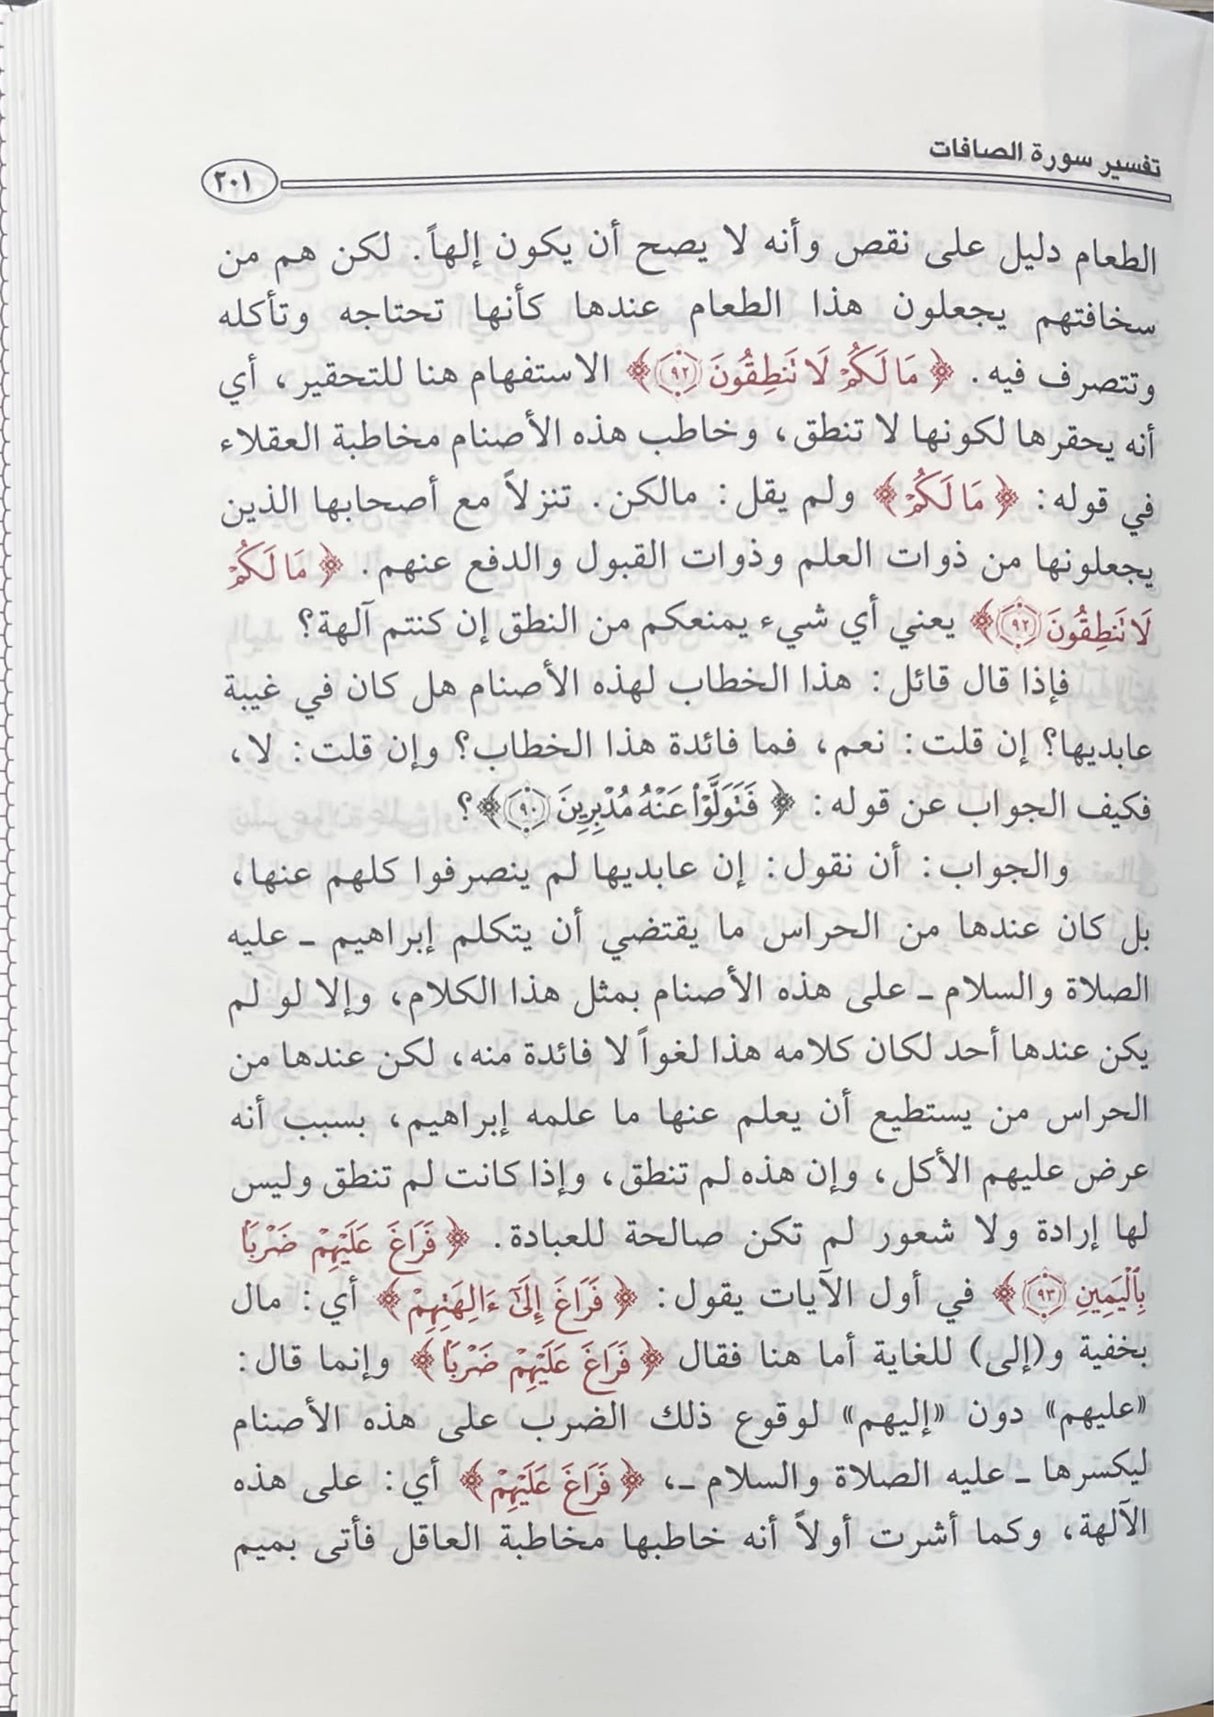 تفسير سورة الصافات
٢٠١
الطعام دليل على نقص وأنه لا يصح أن يكون إلهاً. لكن هم من
سخافتهم يجعلون هذا الطعام عندها كأنها تحتاجه وتأكله
وتتصرف فيه. ﴿مَا لَكُمْ لَا تَنطِقُونَ ٩٢﴾ الاستفهام هنا للتحقير، أي
أنه يحقرها لكونها لا تنطق، وخاطب هذه الأصنام مخاطبة العقلاء
في قوله: ﴿مَا لَكُمْ﴾ ولم يقل: مالكن. تنزلاً مع أصحابها الذين
يجعلونها من ذوات العلم وذوات القبول والدفع عنهم. ﴿مَا لَكُمْ
لَا تَنطِقُونَ ٩٢﴾ يعني أي شيء يمنعكم من النطق إن كنتم آلهة؟
فإذا قال قائل: هذا الخطاب لهذه الأصنام هل كان في غيبة
عابديها؟ إن قلت: نعم، فما فائدة هذا الخطاب؟ وإن قلت: لا،
فكيف الجواب عن قوله: ﴿فَتَوَلَّوْا۟ عَنْهُ مُدْبِرِينَ ٩٠﴾؟
والجواب: أن نقول: إن عابديها لم ينصرفوا كلهم عنها،
بل كان عندها من الحراس ما يقتضي أن يتكلم إبراهيم ـ عليه
الصلاة والسلام ـ على هذه الأصنام بمثل هذا الكلام، وإلا لو لم
يكن عندها أحد لكان كلامه هذا لغواً لا فائدة منه، لكن عندها من
الحراس من يستطيع أن يعلم عنها ما علمه إبراهيم، بسبب أنه
عرض عليهم الأكل، وإن هذه لم تنطق، وإذا كانت لم تنطق وليس
لها إرادة ولا شعور لم تكن صالحة للعبادة. ﴿فَرَاغَ عَلَيْهِمْ ضَرْبًا
بِٱلْيَمِينِ ٩٣﴾ في أول الآيات يقول: ﴿فَرَاغَ إِلَىٰٓ ءَالِهَتِهِمْ﴾ أي: مال
بخفية و(إلى) للغاية أما هنا فقال ﴿فَرَاغَ عَلَيْهِمْ ضَرْبًا﴾ وإنما قال:
«عليهم» دون «إليهم» لوقوع ذلك الضرب على هذه الأصنام
ليكسرها ـ عليه الصلاة والسلام ـ، ﴿فَرَاغَ عَلَيْهِمْ﴾ أي: على هذه
الآلهة، وكما أشرت أولاً أنه خاطبها مخاطبة العاقل فأتى بميم